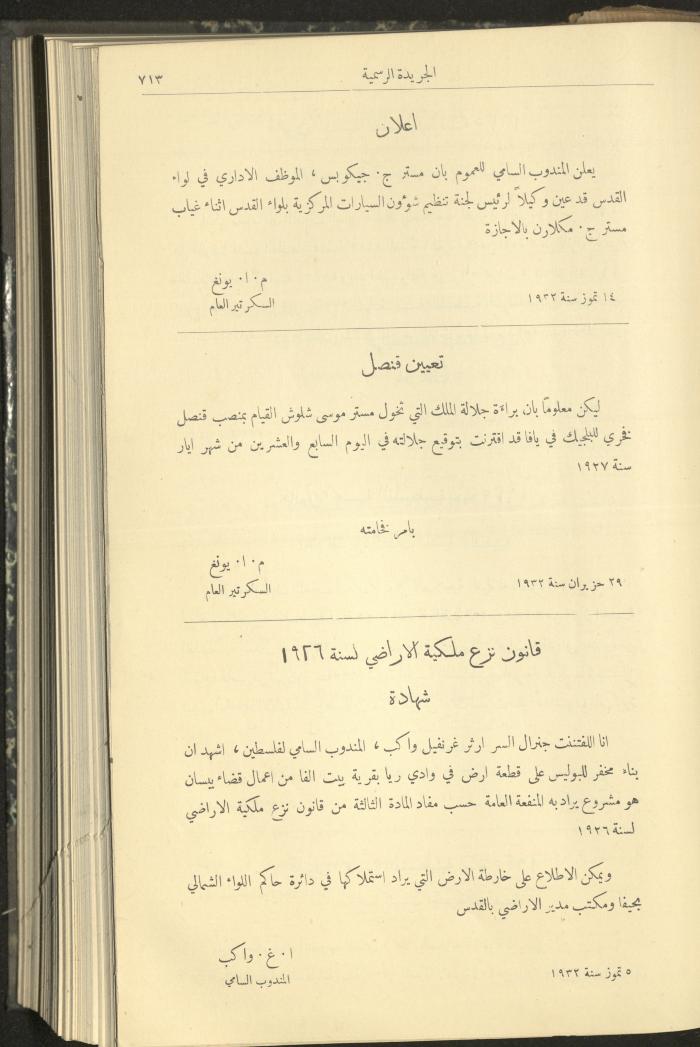 الجريدة الرسمية
٧١٣
اعلان
يعلن المندوب السامي للعموم بان مستر ج. جيكوبس، الموظف الاداري في لواء
القدس قد عين وكيلاً لرئيس لجنة تنظيم شوءون السيارات المركزية بلواء القدس اثناء غياب
مستر ج. مكلارن بالاجازة
م. ا. يونغ
السكرتير العام
١٤ تموز سنة ١٩٣٢
تعيين قنصل
ليكن معلوماً بان براءة جلالة الملك التي تخول مستر موسى شلوش القيام بمنصب قنصل
فخري للبلجيك في يافا قد اقترنت بتوقيع جلالته في اليوم السابع والعشرين من شهر ايار
سنة ١٩٢٧
بامر فخامته
م. ا. يونغ
السكرتير العام
٢٩ حزيران سنة ١٩٣٢
قانون نزع ملكية الاراضي لسنة ١٩٢٦
شهادة
انا اللفتننت جنرال السر ارثر غرنفيل واكب، المندوب السامي لفلسطين، اشهد ان
بناء مخفر للبوليس على قطعة ارض في وادي ريا بقرية بيت الفا من اعمال قضاء بيسان
هو مشروع يراد به المنفعة العامة حسب مفاد المادة الثالثة من قانون نزع ملكية الاراضي
لسنة ١٩٢٦
ويمكن الاطلاع على خارطة الارض التي يراد استملاكها في دائرة حاكم اللواء الشمالي
بحيفا ومكتب مدير الاراضي بالقدس
ا. غ. واكب
المندوب السامي
٥ تموز سنة ١٩٣٢